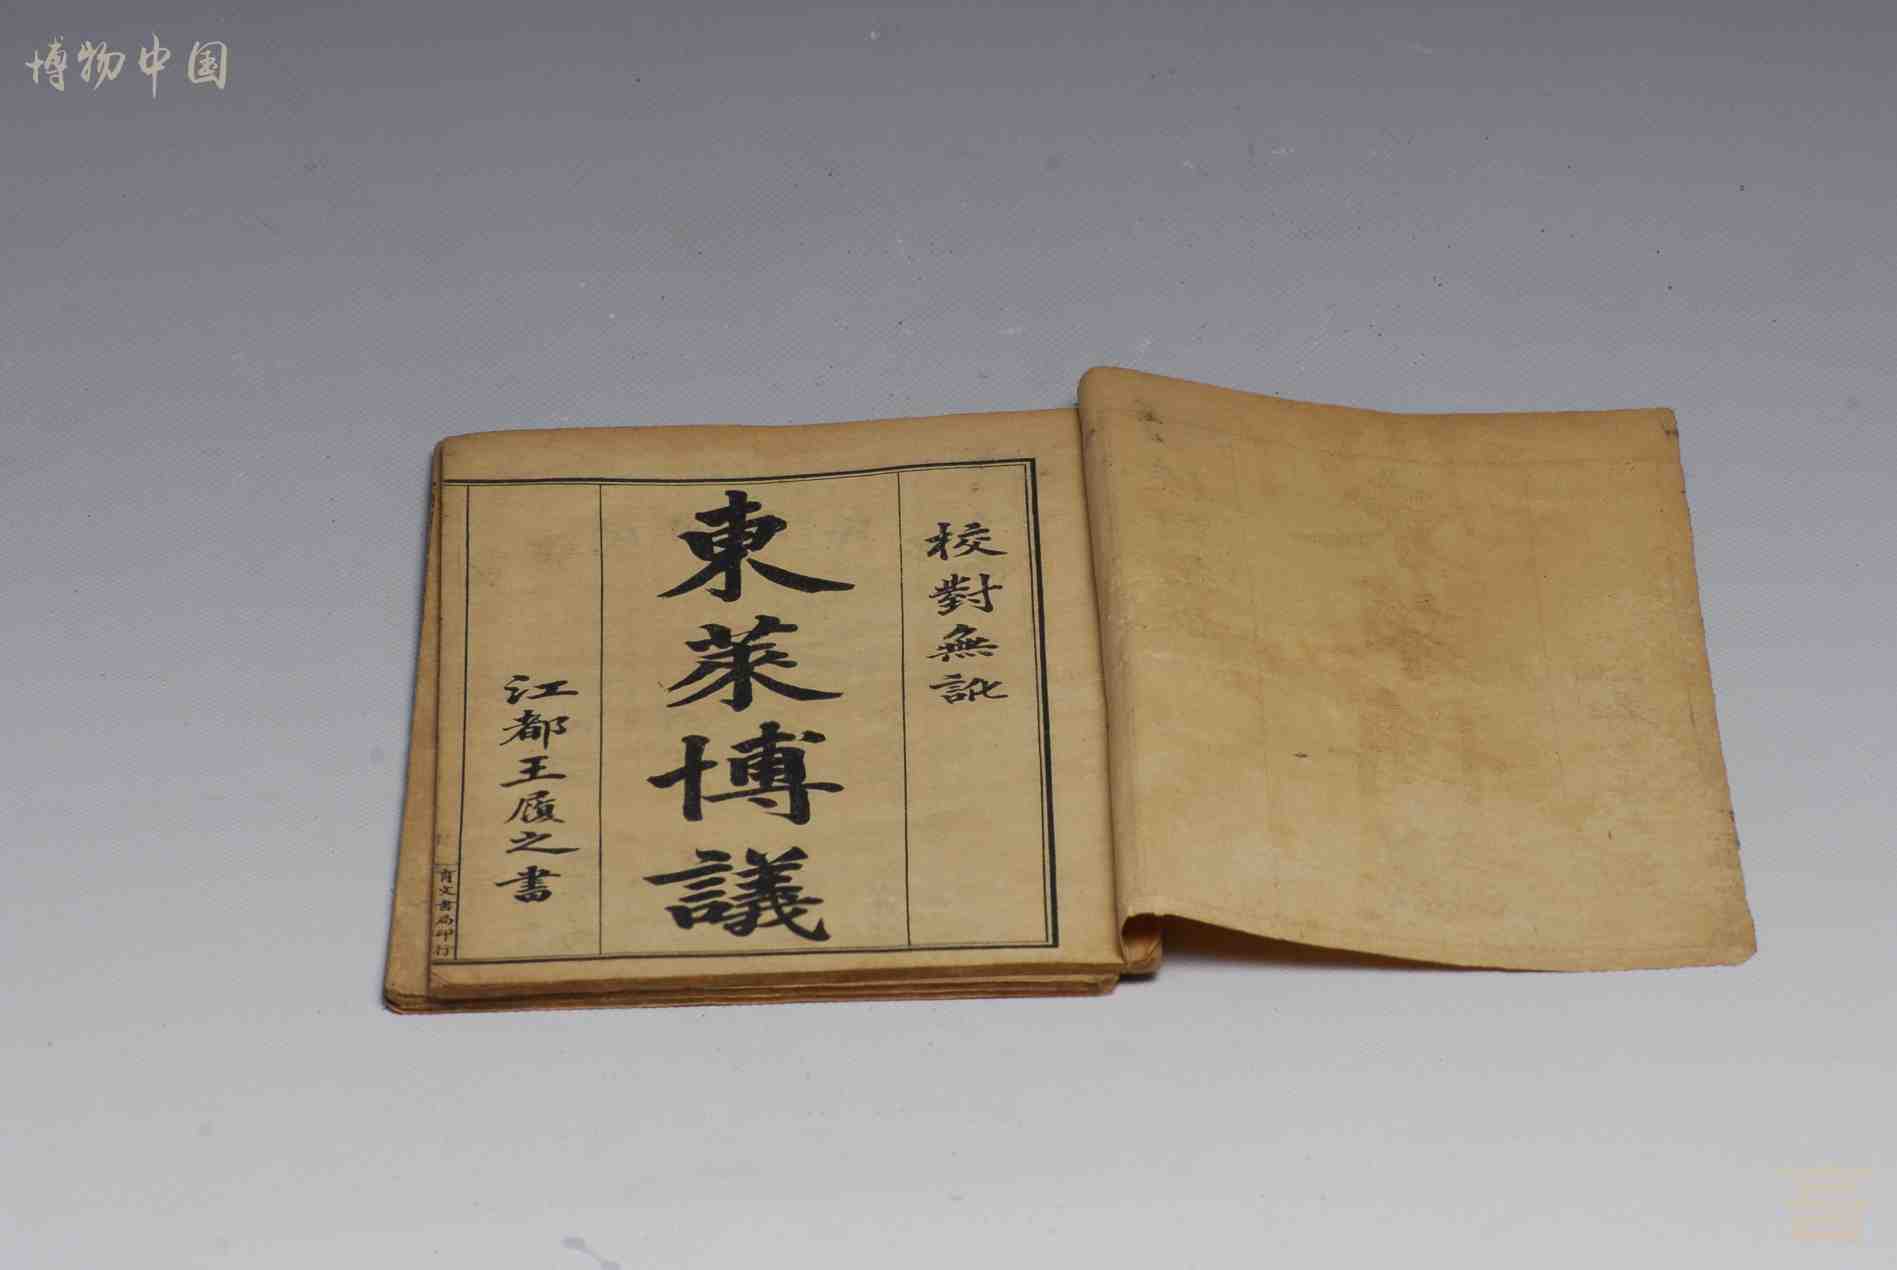 博物中国
校對無訛
東萊博議
江都王履之書
育文書局印行